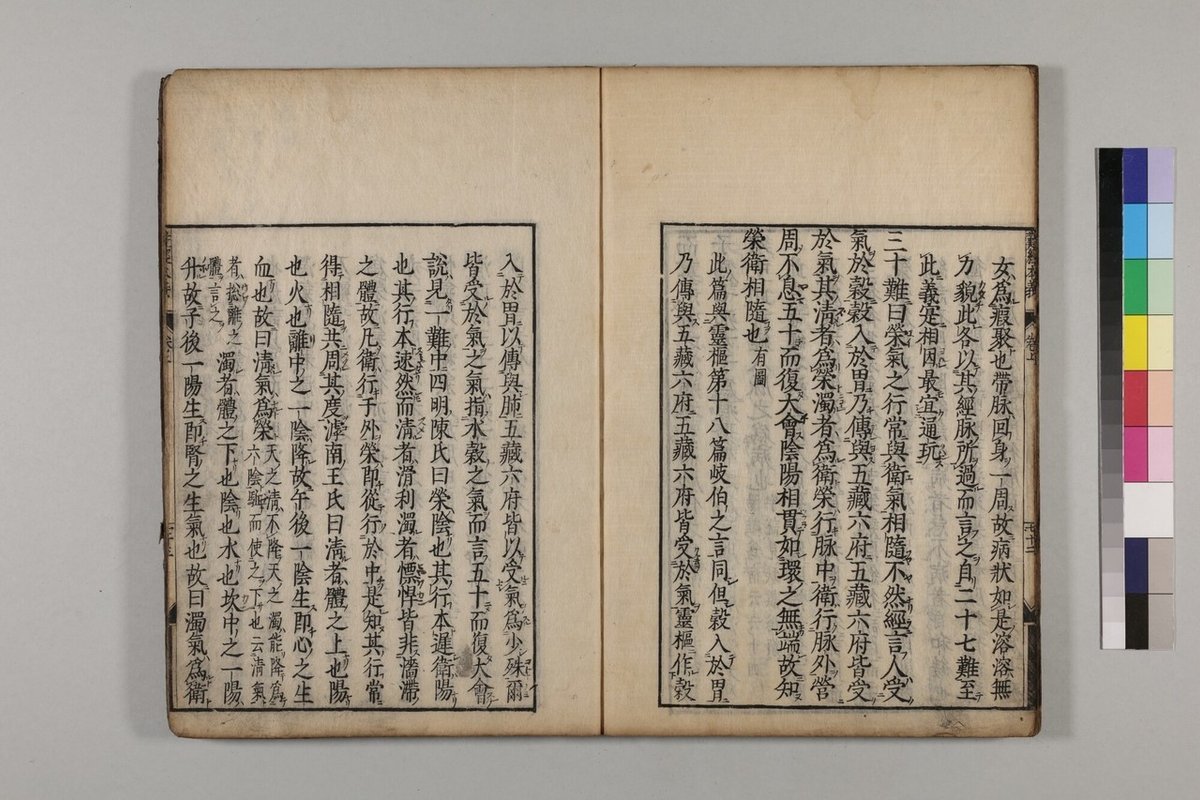 女爲瘕聚也帶脉回身一周故病狀如是溶溶無
力貌此各以其經脉所過而言之自二十七難至
此義寔相因最宜通玩
三十難曰榮氣之行常與衛氣相隨不然經言人受
氣於穀穀入於胃乃傳與五藏六府五藏六府皆受
於氣其清者爲榮濁者爲衛榮行脉中衛行脉外營
周不息五十而復大會陰陽相貫如環之無端故知
榮衛相隨也有圖
此篇與靈樞第十八篇岐伯之言同但穀入於胃
乃傳與五藏六府五藏六府皆受於氣靈樞作穀
入於胃以傳與肺五藏六府皆以受氣爲少殊爾
皆受於氣之氣指水穀之氣而言五十而復大會
說見一難中四明陳氏曰榮陰也其行本遲衛陽
也其行本速然而清者滑利濁者慓悍皆非濡滯
之體故凡衛行于外榮即從行於中是知其行常
得相隨共周其度滹南王氏曰清者體之上也陽
也火也離中之一陰降故午後一陰生即心之生
血也故曰清氣爲榮天之清不降天之濁能降爲六陰驅而使之下也云清氣
者總離之體言之濁者體之下也陰也水也坎中之一陽
升故子後一陽生即腎之生氣也故曰濁氣爲衛
卷上